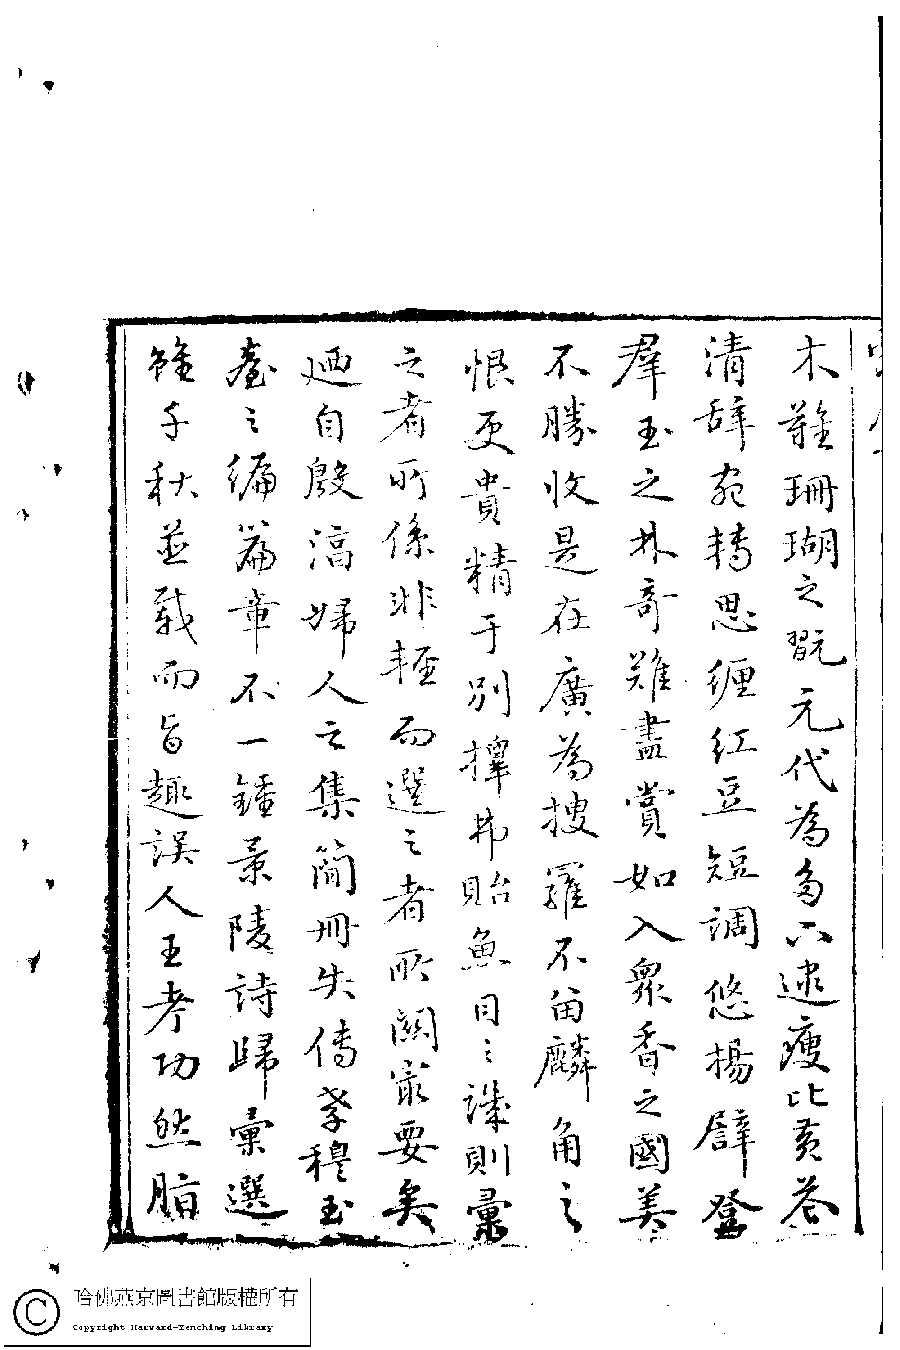 木難珊瑚之翫元代為多亦逮瘦比黃花
清辭宛轉思纏紅豆短調悠揚譬登
羣玉之林奇難盡賞如入眾香之國美
不勝收是在廣為搜羅不留麟角之
恨更貴精于別擇弗貽魚目之譏則彙
之者所係非輕而選之者所關寔要矣
廼自殷淳婦人之集簡冊失傳孝穆玉
臺之編篇章不一鍾景陵詩歸彙選
雖千秋並載而旨趣誤人王考功然脂
哈佛燕京圖書館版權所有
Copyright Harvard-Yenching Library